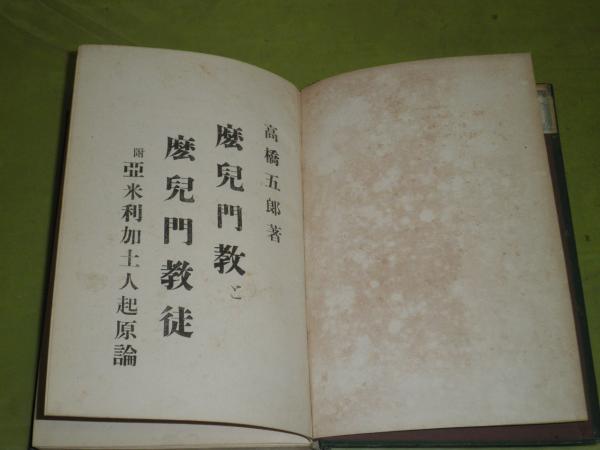 高橋五郎著
麼兒門教と
麼兒門教徒
附 亞米利加土人起原論